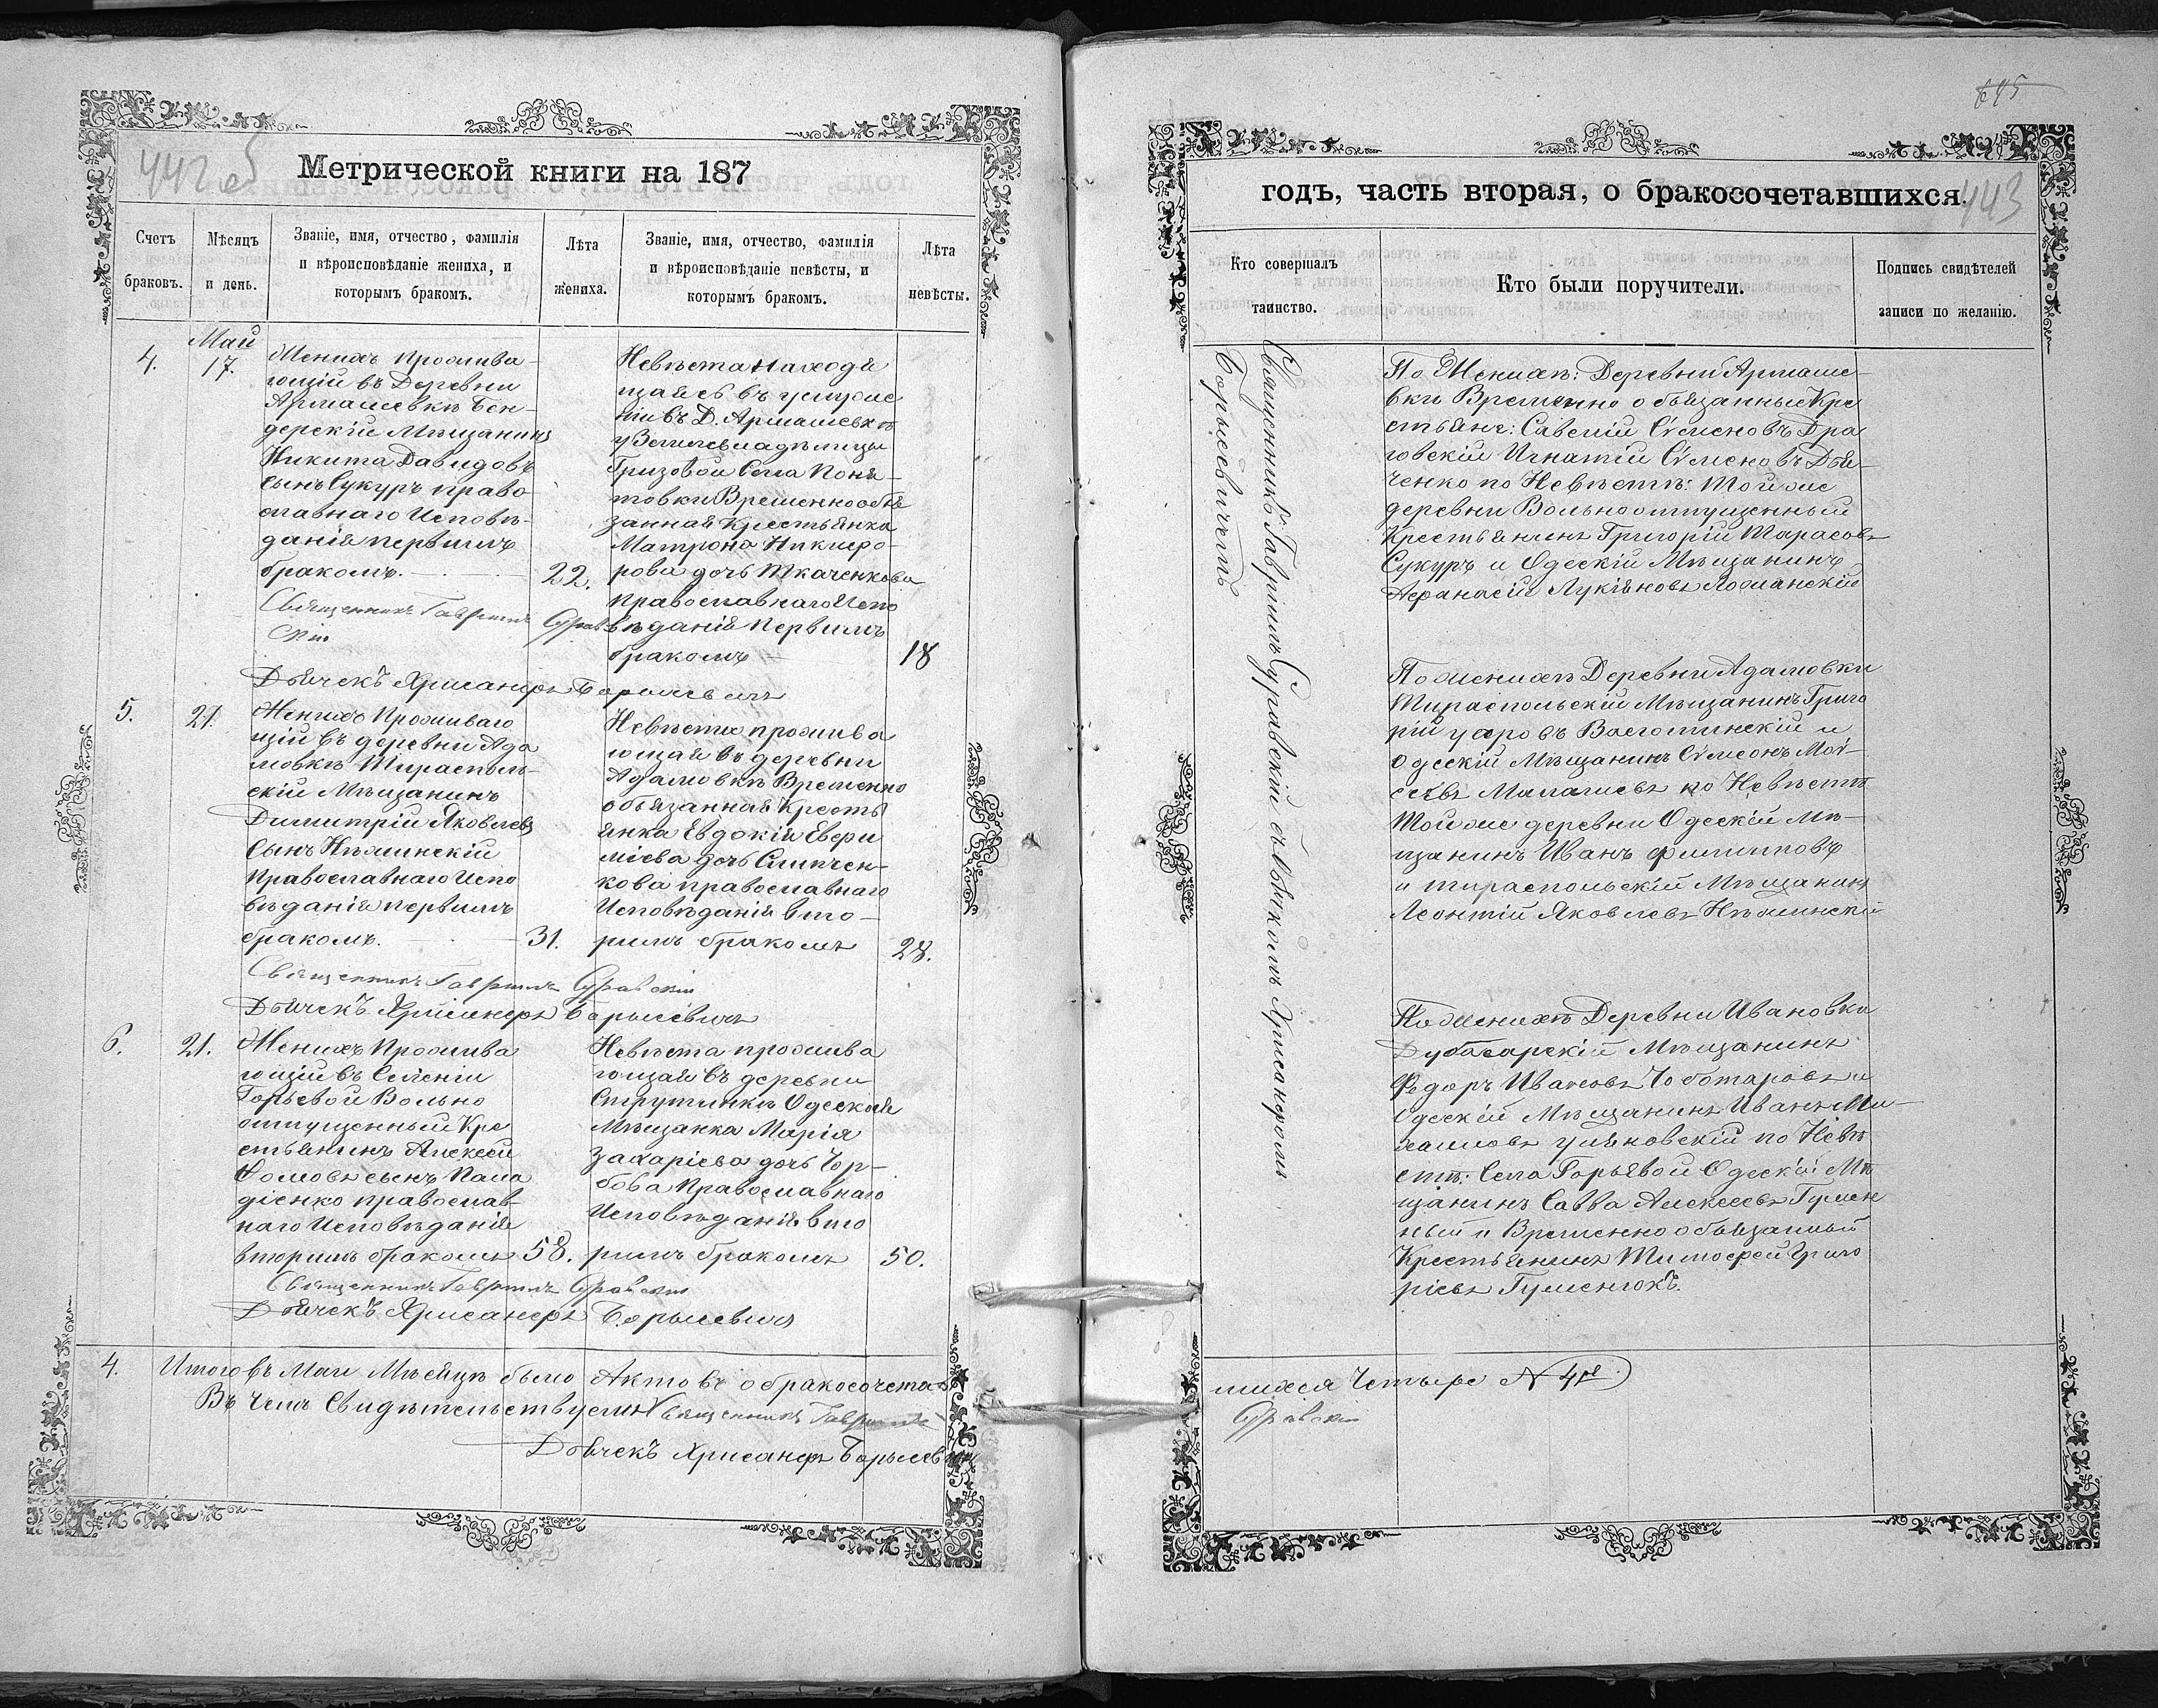 442 об
Метрической книги на 187
Счетъ браковъ.
Мѣсяцъ и день.
Званіе, имя, отчество, фамилія
и вѣроисповѣданіе жениха, и
которымъ бракомъ.
Лѣта жениха.
Званіе, имя, отчество, фамилія
и вѣроисповѣданіе невѣсты, и
которымъ бракомъ.
Лѣта невѣсты.
4.
Май
17.
Женихъ прожива-
ющій въ Деревни
Армашевкѣ Бен-
дерскій Мѣщанинъ
Никита Давидовъ
сынъ Сукуръ право-
славнаго Исповѣ-
данія первымъ
бракомъ.
22.
Невѣста находя
щаяся въ услуже
ніи въ Д. Армашевкѣ
у Землевладѣлицы
Гризовой Села Поня-
товки Временнообя
занная Крестьянка
Матрона Никифо-
рова дочь Ткаченкова
Православнаго Испо
вѣданія первымъ
бракомъ
18
Священникъ Гавріилъ Сурав
скій
Дьячекъ Хрисанфъ Борысевичъ
5.
21.
Женихъ Проживаю
щій въ деревни Ада
мовкѣ Тирасполь-
скій Мѣщанинъ
Димитрій Яковлевъ
Сынъ Нѣжинскій
Православнаго Испо
вѣданія первымъ
бракомъ.
31.
Невѣста прожива
ющая въ деревни
Адамовкѣ Временно
обязанная Кресть
янка Евдокія Евфи
міева дочь Слипчен-
кова православнаго
Исповѣданія вто-
рымъ бракомъ
28.
Священникъ Гавріилъ Суравскій
Дьячекъ Хрисанфъ Борысевичъ
6.
21.
Женихъ Прожива
ющій въ Селеніи
Горьевой Вольно
отпущенный Кре
стьянинъ Алексѣй
Фомовъ сынъ Пала
діенко православ-
наго Исповѣданія
вторымъ бракомъ
58.
Невѣста прожива
ющая въ деревни
Струтинкѣ Одеская
Мѣщанка Марія
Захаріева дочь Гор-
бова Православнаго
Исповѣданія вто
рымъ бракомъ
50.
Священникъ Гавріилъ Суравскій
Дьячекъ Хрисанфъ Борысевичъ
4.
Итого въ Маи Мѣсяцѣ было Актовъ о бракосочетав
Въ чемъ Свидѣтельствуемъ Священникъ Гавріилъ
Дьячекъ Хрисанфъ Борысевичъ
645
443
годъ, часть вторая, о бракосочетавшихся.
Кто совершалъ таинство.
Кто были поручители.
Подпись свидѣтелей
записи по желанію.
Священникъ Гавріилъ Суравскій съ Дьячкомъ Хрисанфомъ
Борысевичемъ
По Женихѣ: Деревни Армаше-
вки Временно обязанные Кре
стьяне: Савелій Симеоновъ Дра
говскій Игнатій Симеоновъ Дья-
ченко по Невѣстѣ: Той же
деревни Вольноотпущенный
Крестьянинъ Григорій Тарасовъ
Сукуръ и Одескій Мѣщанинъ
Афанасій Лукіяновъ Ложанскій
По женихѣ Деревни Адамовки
Тираспольскій Мѣщанинъ Григо
рій
Одескій Мѣщанинъ Симеонъ Мои-
сеевъ Малашевъ по Невѣстѣ
Той же деревни Одескій Мѣ-
щанинъ Иванъ Филипповъ
и тираспольскій Мѣщанинъ
Леонтій Яковлевъ Нѣжинскій
По Женихѣ Деревни Ивановки
Дубосарскій Мѣщанинъ
Федоръ Ивановъ Чоботаровъ и
Одескій Мѣщанинъ Иванъ Ми-
хаиловъ Уляновскій по Невѣ
стѣ: Села Горьевой Одескій Мѣ
щанинъ Савва Алексѣевъ Гумен
ный и Временно обязанный
Крестьянинъ Тимофей Григо
ріевъ Гуменюкъ.
шихся Четыре № 4й
Суравскій